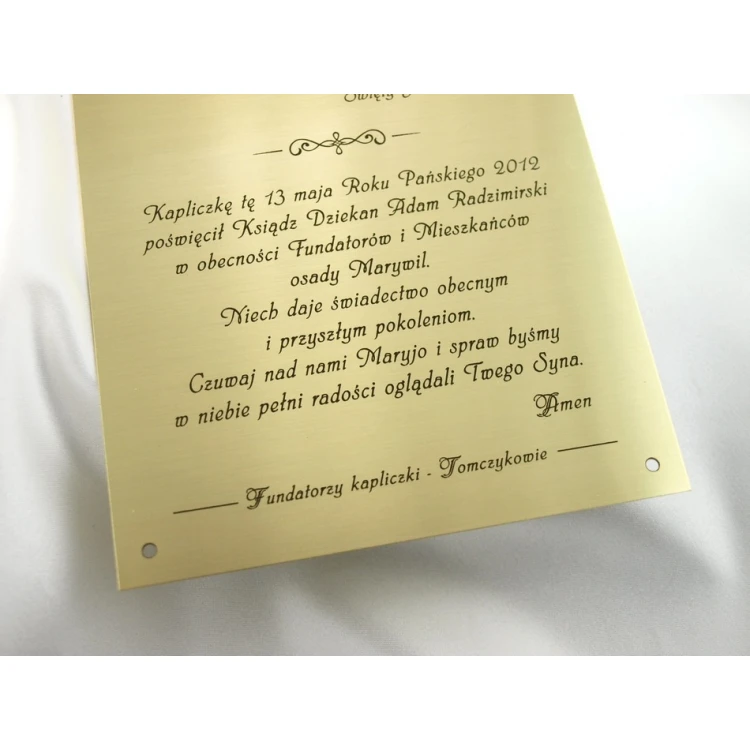 Kapliczkę tę 13 maja Roku Pańskiego 2012
poświęcił Ksiądz Dziekan Adam Radzimirski
w obecności Fundatorów i Mieszkańców
osady Marywil.
Niech daje świadectwo obecnym
i przyszłym pokoleniom.
Czuwaj nad nami Maryjo i spraw byśmy
w niebie pełni radości oglądali Twego Syna.
Amen
Fundatorzy kapliczki - Tomczykowie